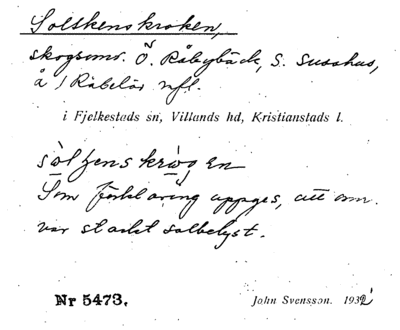 Solskenskroken,
skogsomr. Ö. Råbybäck, S. Susshus,
å / Råbelöv nfl.
i Fjelkestads sn, Villands hd, Kristianstads l.
Som förklaring uppges, att omr.
var starkt solbelyst.
Nr 5473.
John Svensson. 1932